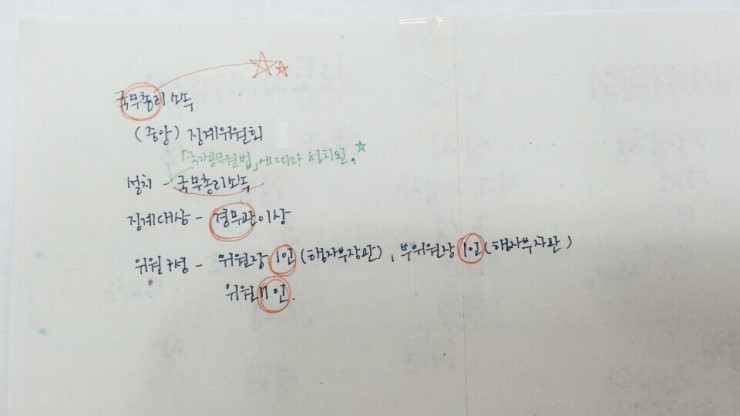 국무총리 소속
(중앙) 징계위원회
「국가공무원법」에 따라 설치된.
설치 - 국무총리 소속
징계대상 - 경무관 이상
위원구성 - 위원장 1인 (행자부장관), 부위원장 1인 (행자부차관)
위원 7인.